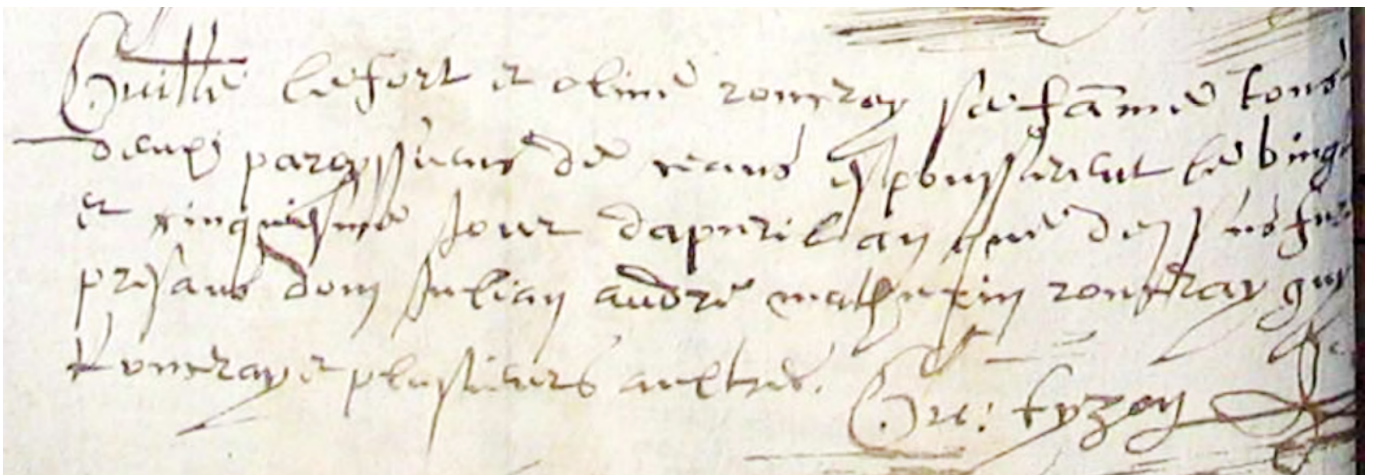 Guille lefort et olive ronceray sa famme tous
deux paroyssiens de ceans espousserent le vingt
et cinquiesme jour dapvril an que dessus fut
presans dom Julian andre mathurin ronceray guy
Ronceray et plusieurs aultres.
Gu: tyzon